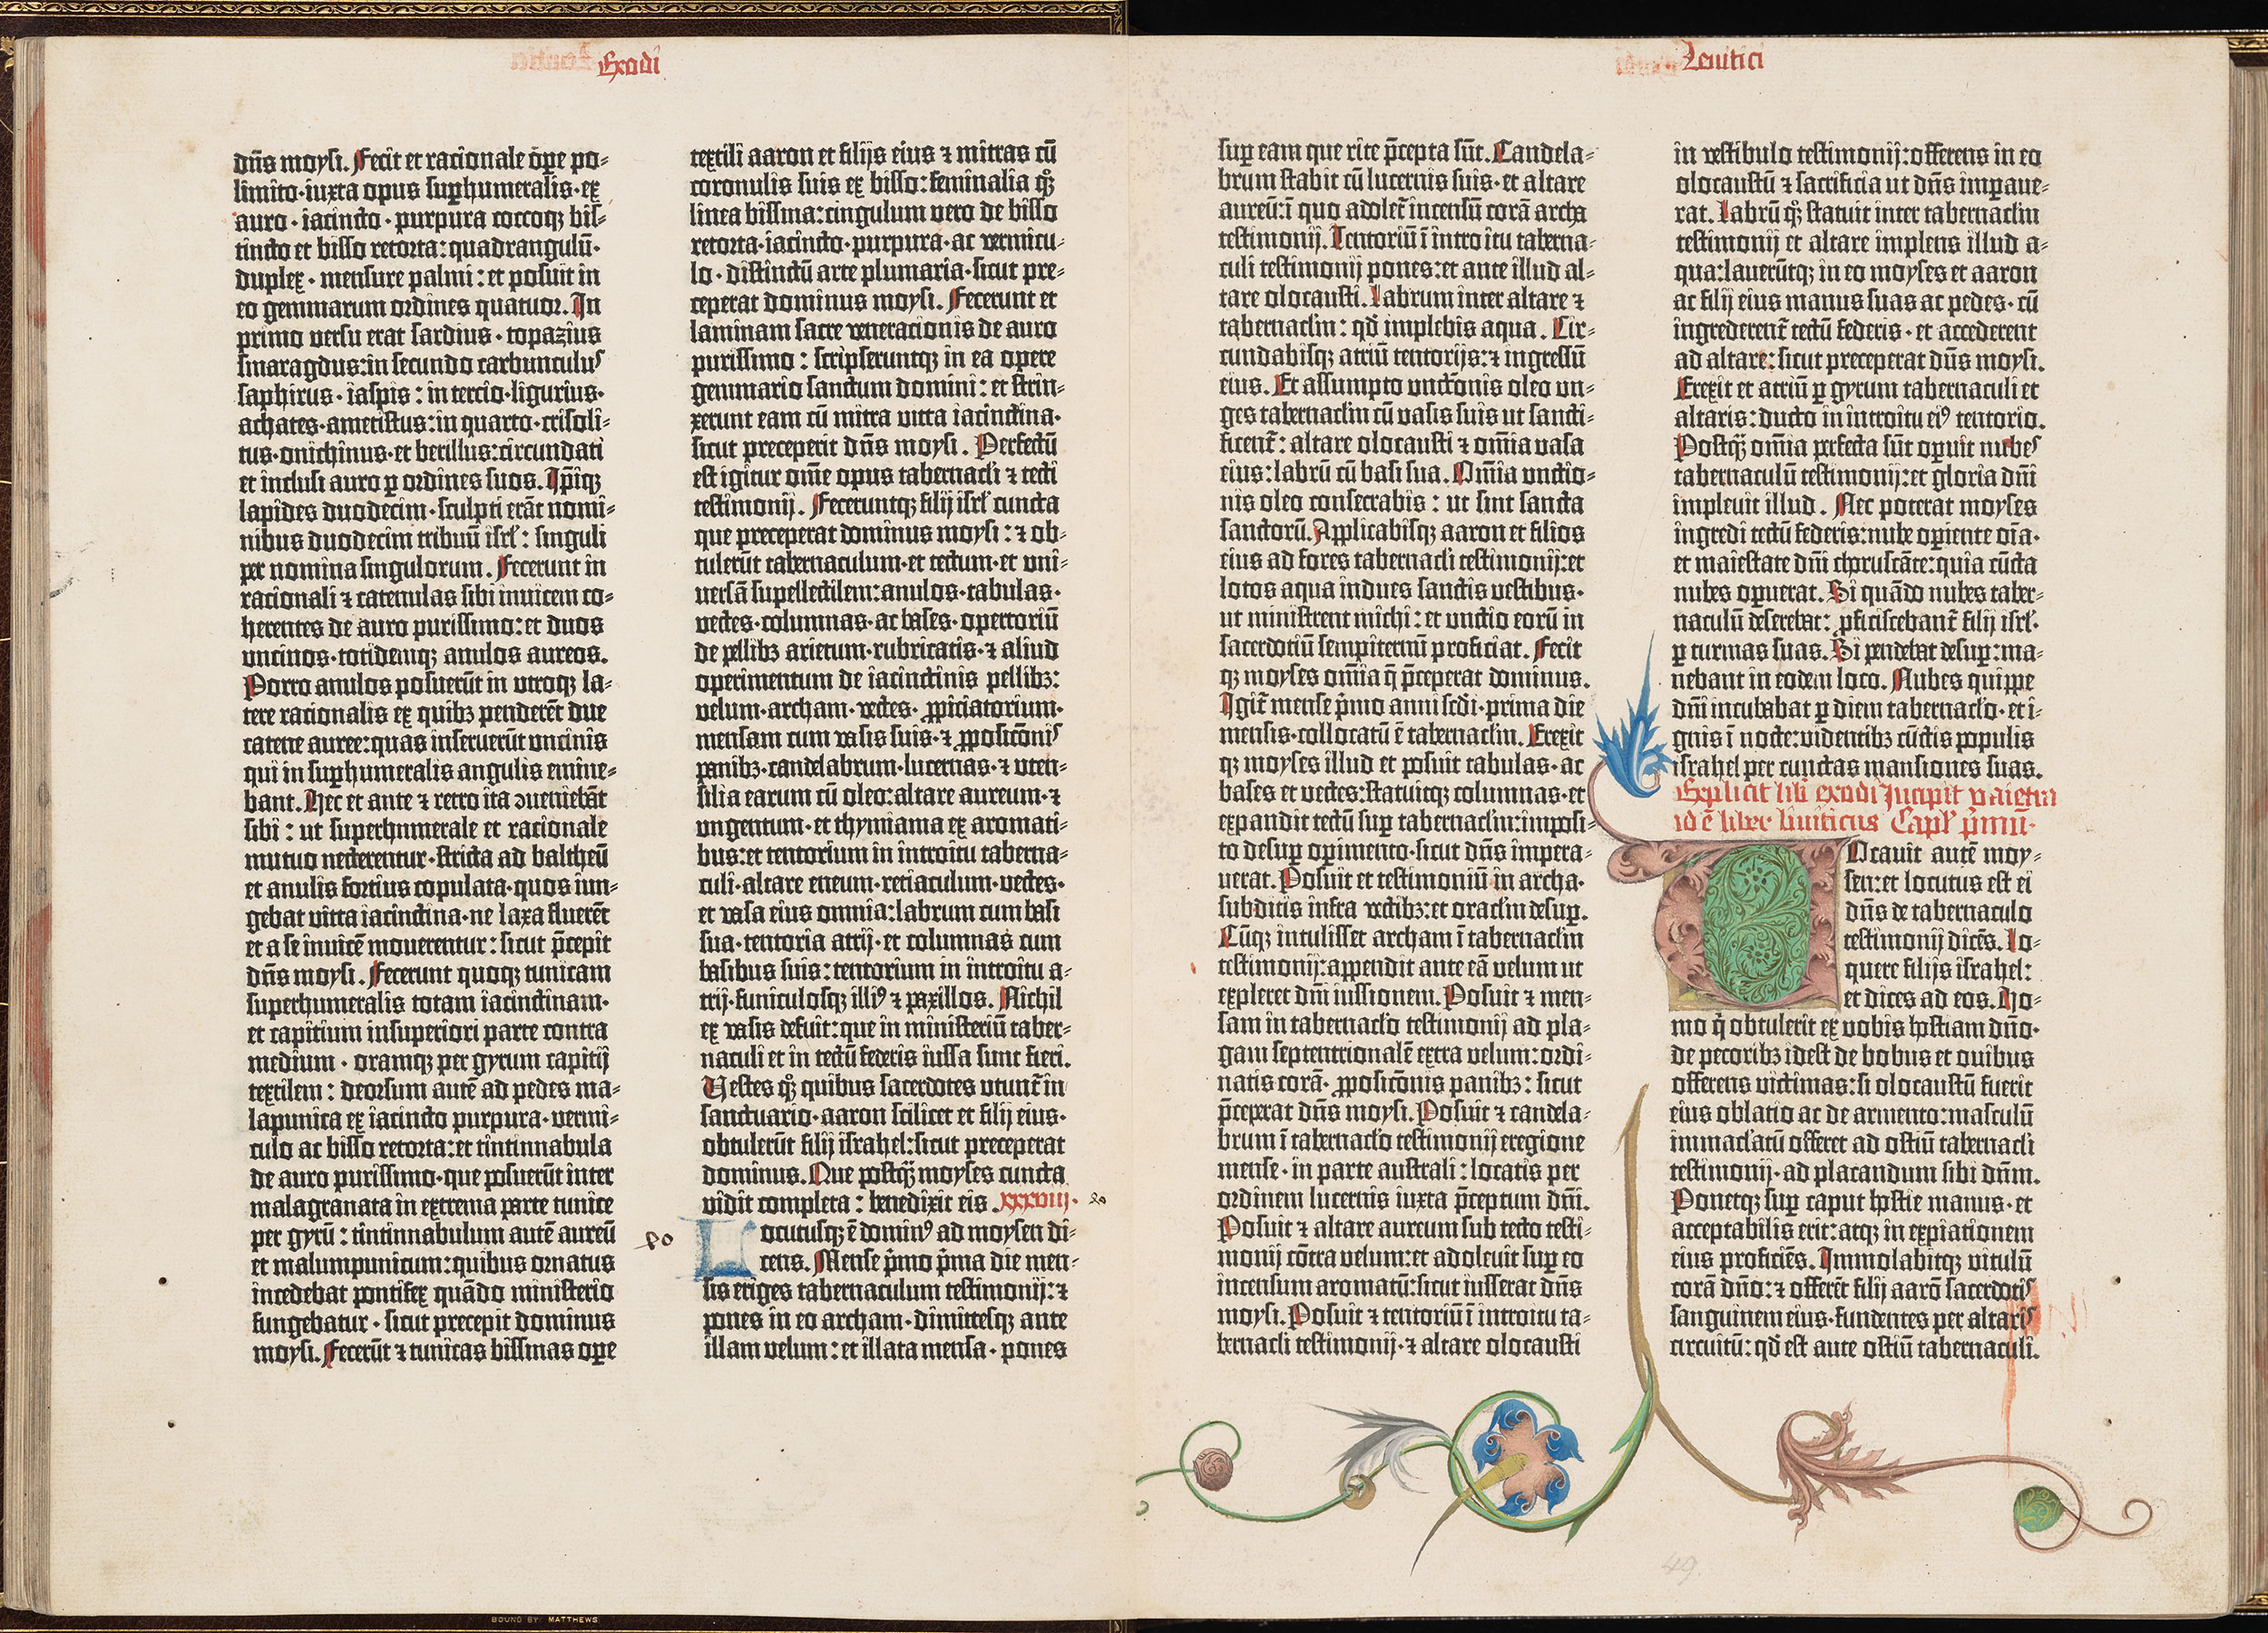 Exodi
dn̄s moysi. Fecit et racionale ope̱ po⸗
limito·iuxta opus sup̱humeralis·ex
auro·iacincto·purpura coccoq; bis⸗
tincto et bisso retorta:quadrangulū·
duplex·mensure palmi:et posuit in
eo gemmarum ordines quatuor. In
primo versu erat sardius·topazius
smaragdus:in secundo carbunculus
saphirus·iaspis:in tercio·ligurius·
achates·ametistus:in quarto·crisoli⸗
tus·onichinus·et berillus:circundati
et inclusi auro ꝑ ordines suos. Ip̄iq;
lapides duodecim·sculpti erāt nomi⸗
nibus duodecim tribuū isrl̓: singuli
per nomina singulorum. Fecerunt in
racionali ⁊ catenulas sibi inuicem co⸗
herentes de auro purissimo:et duos
uncinos·totidemq; anulos aureos.
Porro anulos posuerūt in utroq; la⸗
tere racionalis ex quibꝫ penderēt due
catene auree:quas inseruerūt uncinis
qui in sup̱humeralis angulis emine⸗
bant. Hec et ante ⁊ retro ita ɔueniebāt
sibi: ut superhumerale et racionale
mutuo necterentur·stricta ad baltheū
et anulis fortius copulata·quos iun⸗
gebat vitta iacinctina·ne laxa fluerēt
et a se inuicē mouerentur: sicut p̄cepit
dn̄s moysi. Fecerunt quoq; tunicam
superhumeralis totam iacinctinam·
et capitium insuperiori parte contra
medium·oramq; per gyrum capitij
textilem: deorsum autē ad pedes ma⸗
lapunica ex iacincto purpura·vermi⸗
culo ac bisso retorta:et tintinnabula
de auro purissimo·que posuerūt inter
malagranata in extrema parte tunice
per gyrū: tintinnabulum autē aureū
et malumpunicum:quibus ornatus
incedebat pontifex quādo ministerio
fungebatur·sicut precepit dominus
moysi. Fecerūt ⁊ tunicas bissinas ope̱
textili aaron et filijs eius ⁊ mitras cū
coronulis suis ex bisso:feminalia qꝫ
linea bissina:cingulum vero de bisso
retorta·iacincto·purpura·ac vermicu⸗
lo·distinctū arte plumaria·sicut pre⸗
ceperat dominus moysi. Fecerunt et
laminam sacre veneracionis de auro
purissimo: scripseruntq; in ea opere
gemmario sanctum domini: et strin⸗
xerunt eam cū mitra vitta iacinctina·
sicut preceperit dn̄s moysi. Perfectū
est igitur om̄e opus tabernacl̓i ⁊ tecti
testimonij. Feceruntq; filij isrl̓ cuncta
que preceperat dominus moysi: ⁊ ob⸗
tulerūt tabernaculum·et tectum·et uni⸗
versā supellectilem:anulos·tabulas·
vectes·columnas·ac bases·opertoriū
de pellibꝫ arietum·rubricatis·⁊ aliud
operimentum de iacinctinis pellibꝫ:
velum·archam·vectes·ꝓpiciatorium·
mensam cum vasis suis·⁊ ꝓposicōnis
panibꝫ·candelabrum·lucernas·⁊ uten⸗
silia earum cū oleo:altare aureum·⁊
ungentum·et thymiama ex aromati⸗
bus:et tentorium in introitu taberna⸗
culi·altare eneum·retiaculum·vectes·
et vasa eius omnia:labrum cum basi
sua·tentoria atrij·et columnas cum
basibus suis:tentorium in introitu a⸗
trij·funiculosq; illiꝰ ⁊ paxillos. Nichil
ex vasis defuit:que in ministeriū taber⸗
naculi et in tectū federis iussa sunt fieri.
Vestes qꝫ quibus sacerdotes utunt̄ in
sanctuario·aaron scilicet et filij eius·
obtulerūt filij israhel:sicut preceperat
dominus. Que postq̄ moyses cuncta
vidit completa: benedixit eis. xxxviii·
Locutusq; ē dominꝰ ad moysen di⸗
cens. Mense p̄mo p̄ma die men⸗
sis eriges tabernaculum testimonij:⁊
pones in eo archam·dimittesq; ante
illam velum:et illata mensa·pones
Leuitici
sup̱ eam que rite p̄cepta sūt. Candela⸗
brum stabit cū lucernis suis·et altare
aureū:ī quo adolet̄ incensū corā archa
testimonij. Tentoriū ī introitu taberna⸗
culi testimonij pones:et ante illud al⸗
tare olocausti. Labrum inter altare ⁊
tabernaclm̄: qd̓ implebis aqua. Cir⸗
cundabisq; atriū tentorijs:⁊ ingressū
eius. Et assumpto unctōnis oleo un⸗
ges tabernaclm̄ cū vasis suis ut sancti⸗
ficent̄: altare olocausti ⁊ om̄ia vasa
eius:labrū cū basi sua. Om̄ia unctio⸗
nis oleo consecrabis: ut sint sancta
sanctorū. Applicabisq; aaron et filios
eius ad fores tabernacl̓i testimonij:et
lotos aqua indues sanctis vestibus·
ut ministrent michi: et unctio eorū in
sacerdotiū sempiternū proficiat. Fecit
q; moyses om̄ia q̄ p̄ceperat dominus.
Igit̄ mense p̄mo anni scd̓i·prima die
mensis·collocatū ē tabernaclm̄. Erexit
q; moyses illud et posuit tabulas·ac
bases et vectes:statuitq; columnas·et
expandit tectū sup̱ tabernaclm̄:imposi⸗
to desup̱ op̱imento·sicut dn̄s impera⸗
uerat. Posuit et testimoniū in archa·
subditis infra vectibꝫ:et oraclm̄ desup̱.
Cūq; intulisset archam ī tabernaclm̄
testimonij:appendit ante eā velum ut
expleret dn̄i iussionem. Posuit ⁊ men⸗
sam in tabernacl̓o testimonij ad pla⸗
gam septentrionalē extra velum:ordi⸗
natis corā·ꝓposicōnis panibꝫ: sicut
p̄ceperat dn̄s moysi. Posuit ⁊ candela⸗
brum ī tabernacl̓o testimonij eregione
mense·in parte australi:locatis per
ordinem lucernis iuxta p̄ceptum dn̄i.
Posuit ⁊ altare aureum sub tecto testi⸗
monij cōtra velum:et adoleuit sup̱ eo
incensum aromatū:sicut iusserat dn̄s
moysi. Posuit ⁊ tentoriū ī introitu ta⸗
bernacl̓i testimonij·⁊ altare olocausti
in vestibulo testimonij:offerens in eo
olocaustū ⁊ sacrificia ut dn̄s imp̱aue⸗
rat. Labrū qꝫ statuit inter tabernaclm̄
testimonij et altare implens illud a⸗
qua:lauerūtq; in eo moyses et aaron
ac filij eius manus suas ac pedes·cū
ingrederent̄ tectū federis·et accederent
ad altare:sicut preceperat dn̄s moysi.
Erexit et atriū ꝑ gyrum tabernaculi et
altaris:ducto in introitu eiꝰ tentorio.
Postq̄ om̄ia ꝑfecta sūt op̱uit nubes
tabernaculū testimonij:et gloria dn̄i
impleuit illud. Nec poterat moyses
ingredi tectū federis:nube op̱iente oīa·
et maiestate dn̄i choruscāte:quia cūcta
nubes op̱uerat. Si quādo nubes taber⸗
naculū deserebat: ꝓficiscebant̄ filij isrl̓·
ꝑ turmas suas. Si pendebat desup̱:ma⸗
nebant in eodem loco. Nubes quippe
dn̄i incubabat ꝑ diem tabernacl̓o·et i⸗
gnis ī nocte:videntibꝫ cūctis populis
israhel per cunctas mansiones suas.
Explicit lib̄ exodi Incipit vaiecra
id ē liber leuiticus Capl̓ p̄mū·
Vocauit autē moy⸗
sen:et locutus est ei
dn̄s de tabernaculo
testimonij dicēs. Lo⸗
quere filijs israhel:
et dices ad eos. Ho⸗
mo q̓ obtulerit ex vobis hostiam dn̄o·
de pecoribꝫ idest de bobus et ouibus
offerens victimas:si olocaustū fuerit
eius oblatio ac de armento:masculū
immacl̓atū offeret ad ostiū tabernacl̓i
testimonij·ad placandum sibi dn̄m.
Ponetq; sup̱ caput hostie manus·et
acceptabilis erit:atq; in expiationem
eius proficiēs. Immolabitq; vitulū
corā dn̄o:⁊ offerēt filij aarō sacerdotis
sanguinem eius·fundentes per altaris
circuitū:qd̓ est ante ostiū tabernaculi.
49.
BOUND BY MATTHEWS